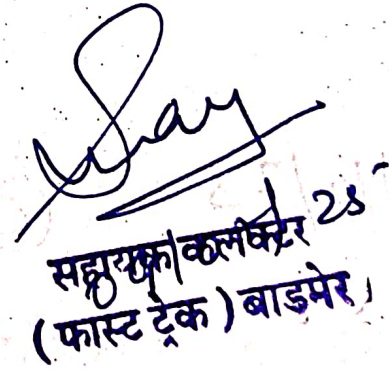 सहायक कलेक्टर 25
(फास्ट ट्रेक) बाडमेर।